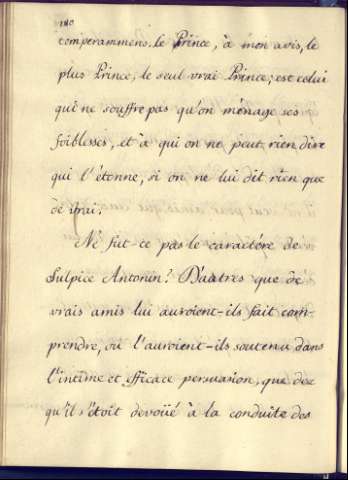 180
temperammens. le Prince, à mon avis, le
plus Prince, le seul vrai Prince; est celui
qui ne souffre pas qu'on ménage ses
foiblesses, et à qui on ne peut rien dire
qui l'étonne, si on ne lui dit rien que
de vrai.
Ne fut-ce pas le caractére de
Sulpice Antonin? D'autres que de
vrais amis lui auroient-ils fait com-
prendre, ou l'auroient-ils soutenu dans
l'intime et efficace persuasion, que dez
qu'il s'étoit devoüé à la conduite des